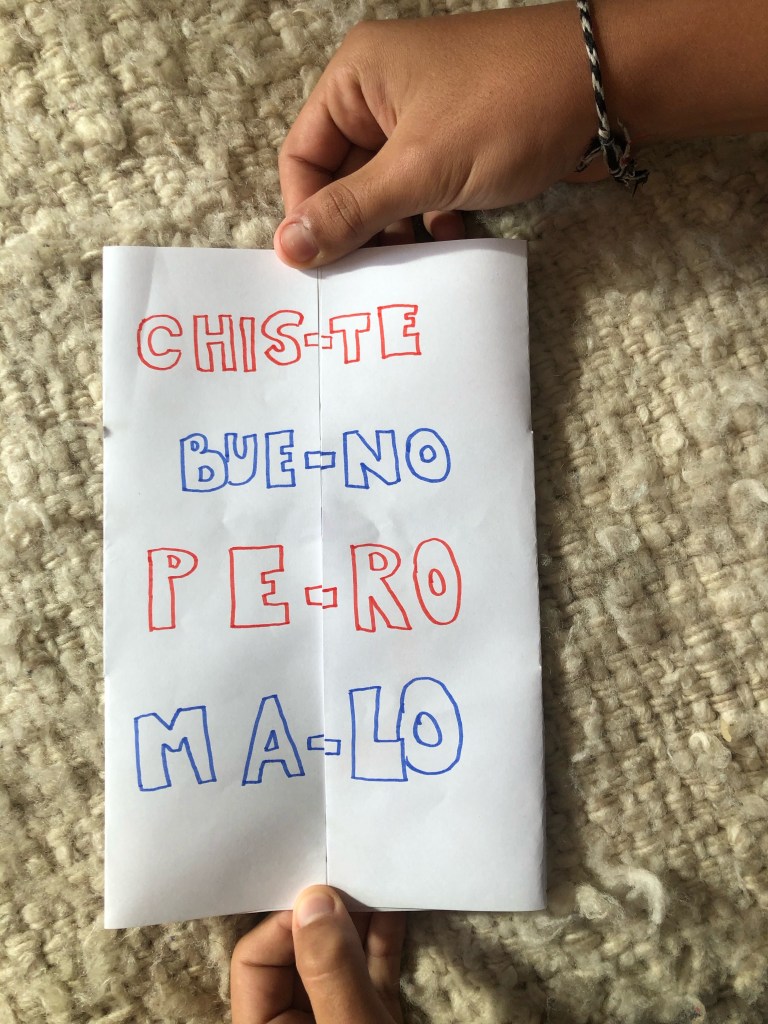 CHIS-TE
BUE-NO
PE-RO
MA-LO